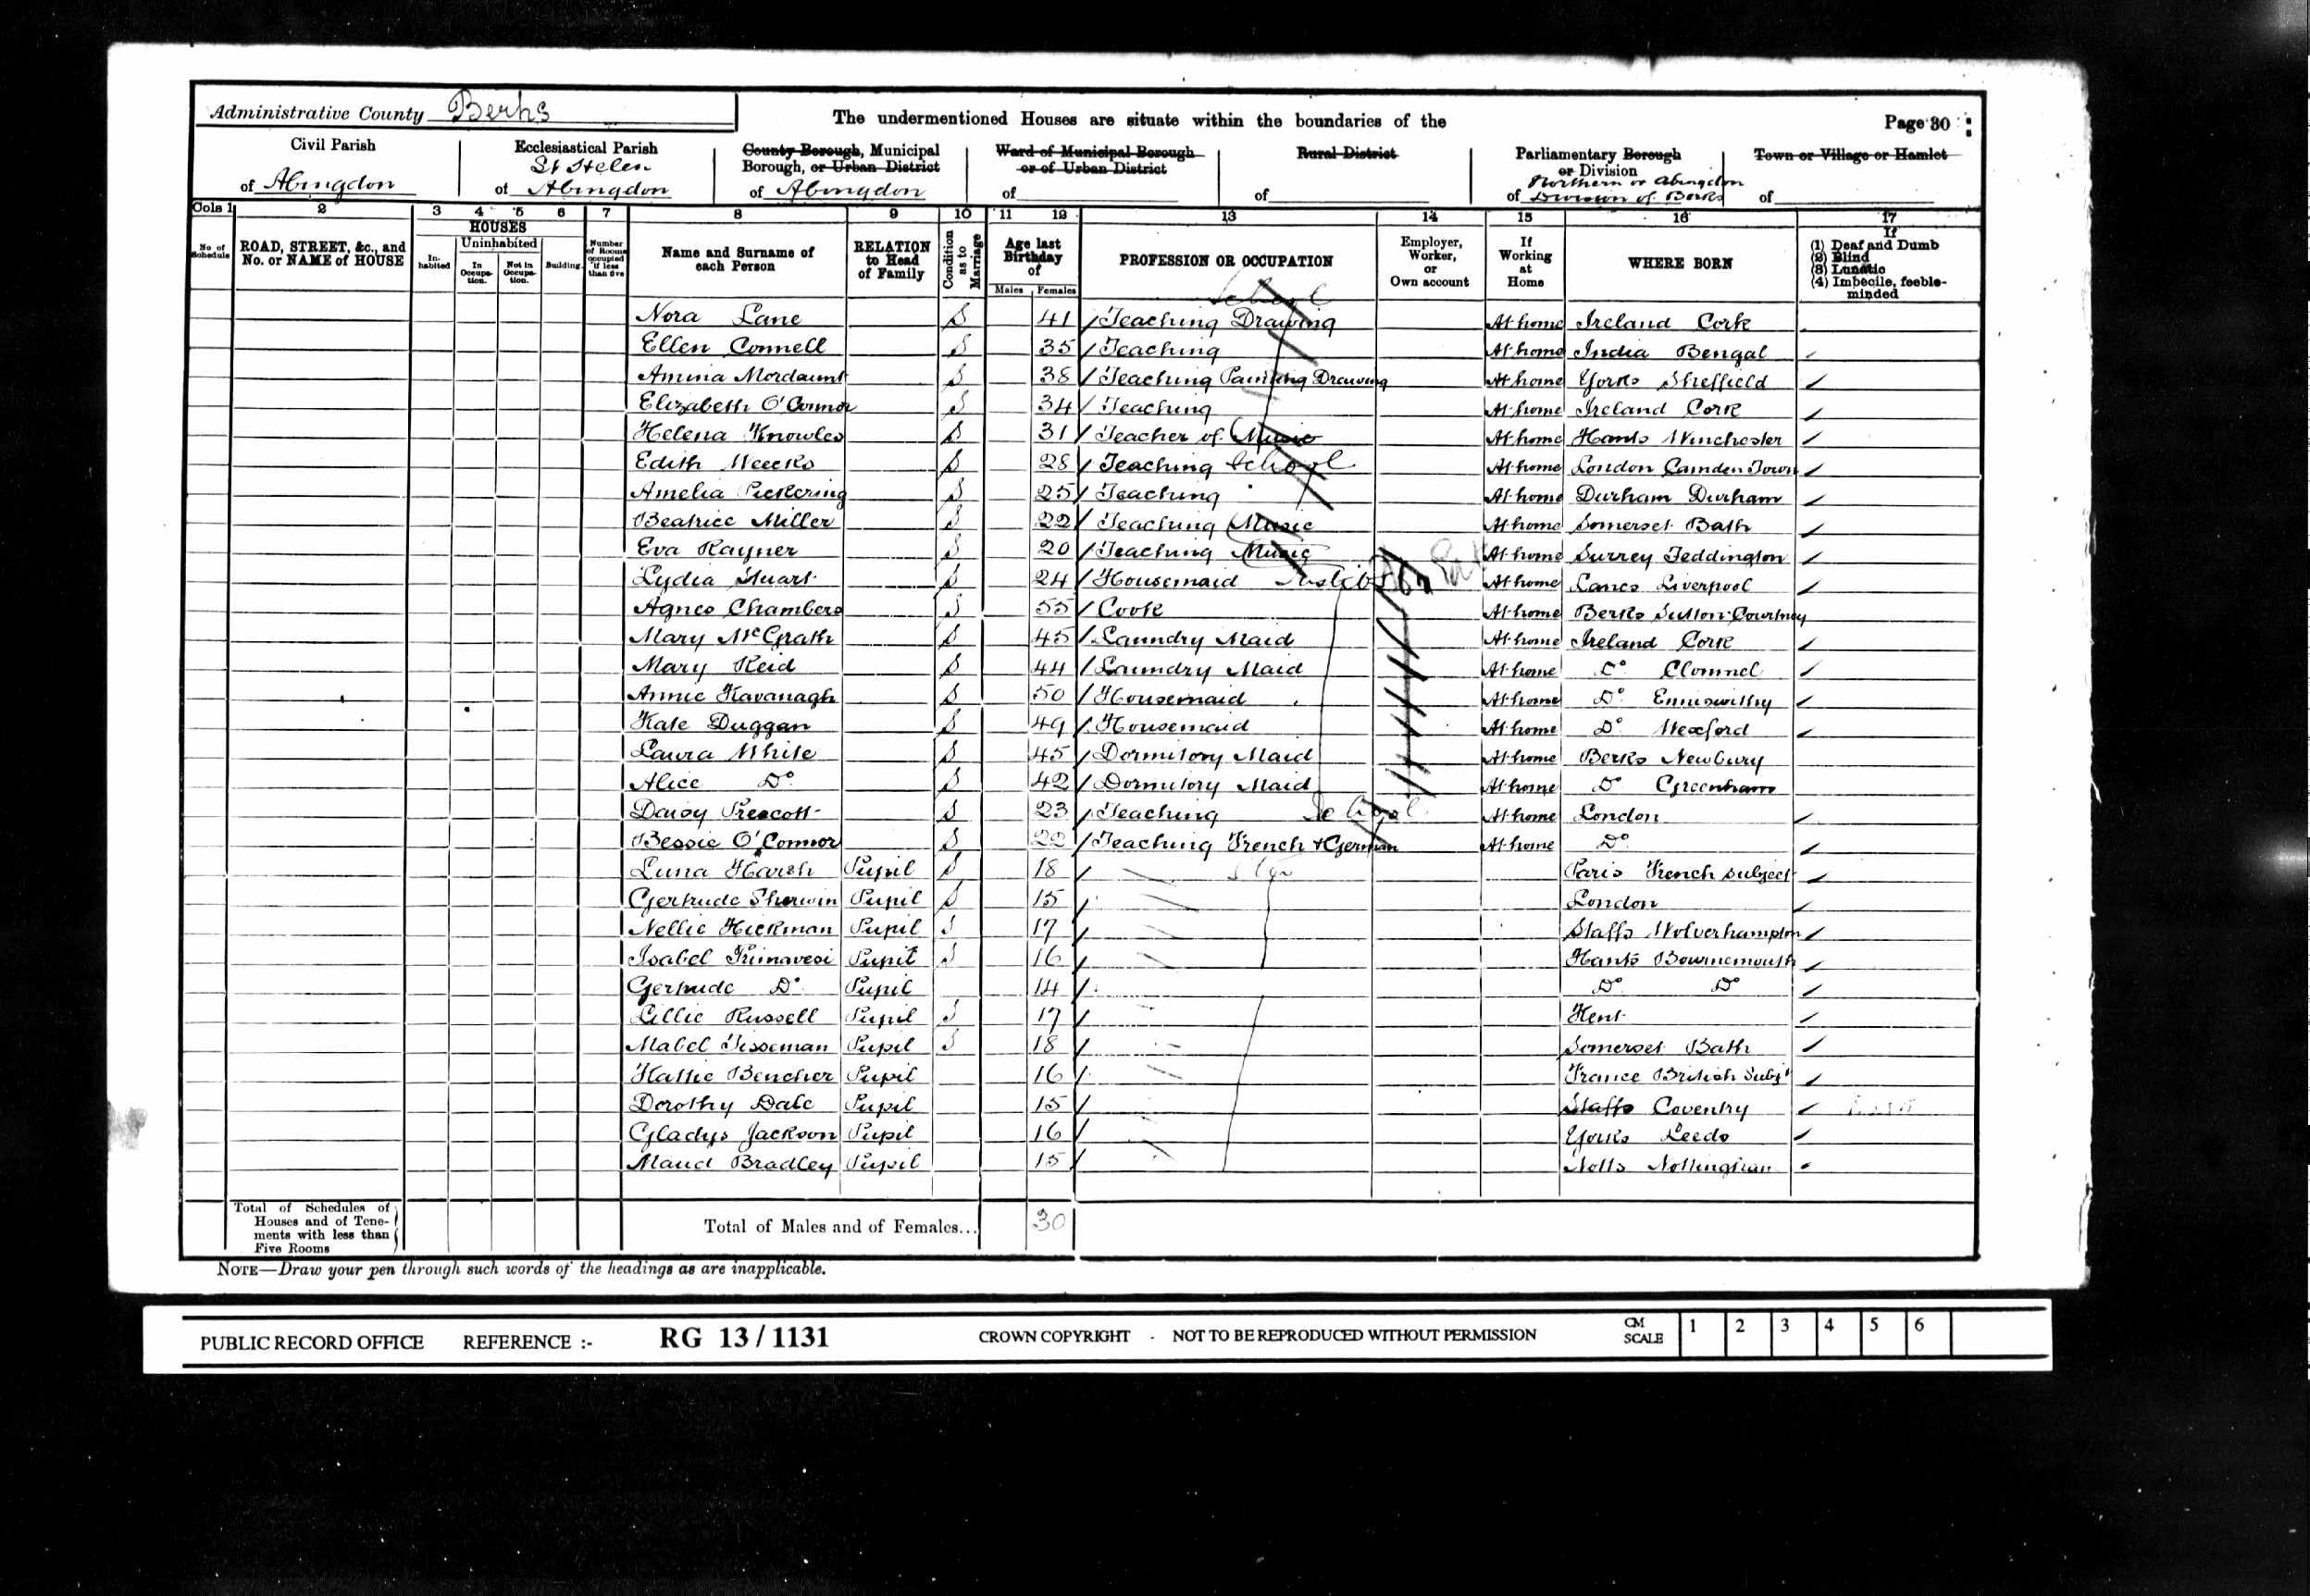 Administrative County Berks
The undermentioned Houses are situate within the boundaries of the
Page 30
Civil Parish
of Abingdon
Ecclesiastical Parish
St Helen
of Abingdon
County Borough, Municipal
Borough, or Urban District
of Abingdon
Ward of Municipal Borough
or of Urban District
of
Rural District
of
Parliamentary Borough
or Division
Northern or Abingdon
of Division of Berks
Town or Village or Hamlet
of
Cols 1 2 3 4 5 6 7 8 9 10 11 12 13 14 15 16 17
No of Schedule
ROAD, STREET, &c., and No. or NAME of HOUSE
HOUSES
In-habited
Uninhabited
In Occupa-tion.
Not in Occupa-tion.
Building
Number of Rooms occupied if less than five
Name and Surname of each Person
RELATION to Head of Family
Condition as to Marriage
Age last Birthday of
Males Females
PROFESSION OR OCCUPATION
Employer, Worker, or Own account
If Working at Home
WHERE BORN
If
(1) Deaf and Dumb
(2) Blind
(3) Lunatic
(4) Imbecile, feeble-minded
School
Nora Lane S 41 Teaching Drawing At home Ireland Cork
Ellen Connell S 35 Teaching At home India Bengal
Amina Mordaunt S 38 Teaching Painting Drawing At home Yorks Sheffield
Elizabeth O'Connor S 34 Teaching At home Ireland Cork
Helena Knowles S 31 Teacher of Music At home Hants Winchester
Edith S 28 Teaching School At home London Camden Town
Amelia Pickering S 25 Teaching At home Durham Durham
Beatrice Miller S 22 Teaching Music At home Somerset Bath
Eva Rayner S 20 Teaching Music At home Surrey Teddington
Lydia Stuart S 24 Housemaid At home Lancs Liverpool
Agnes Chambers S 55 Cook At home Berks Sutton Courtney
Mary McGrath S 45 Laundry Maid At home Ireland Cork
Mary Reid S 44 Laundry Maid At home Do Clonmel
Annie Kavanagh S 50 Housemaid At home Do Enniscorthy
Kate Duggan S 49 Housemaid At home Do Wexford
Laura White S 45 Dormitory Maid At home Berks Newbury
Alice Do S 42 Dormitory Maid At home Do Greenham
Daisy Prescott S 23 Teaching School At home London
Bessie O'Connor S 22 Teaching French & German At home Do
Luna Harsh Pupil S 18 Paris French subject
Gertrude Sherwin Pupil S 15 London
Nellie Hickman Pupil S 17 Staffs Wolverhampton
Isabel Primavesi Pupil S 16 Hants Bournemouth
Gertrude Do Pupil 14 Do Do
Lillie Russell Pupil S 17 Kent
Mabel Tisseman Pupil S 18 Somerset Bath
Hattie Bencher Pupil 16 France British Subjt
Dorothy Dale Pupil 15 Staffs Coventry
Gladys Jackson Pupil 16 Yorks Leeds
Maud Bradley Pupil 15 Notts Nottingham
Total of Schedules of Houses and of Tene-ments with less than Five Rooms
Total of Males and of Females... 30
NOTE—Draw your pen through such words of the headings as are inapplicable.
PUBLIC RECORD OFFICE REFERENCE :- RG 13 / 1131 CROWN COPYRIGHT - NOT TO BE REPRODUCED WITHOUT PERMISSION CM SCALE 1 2 3 4 5 6